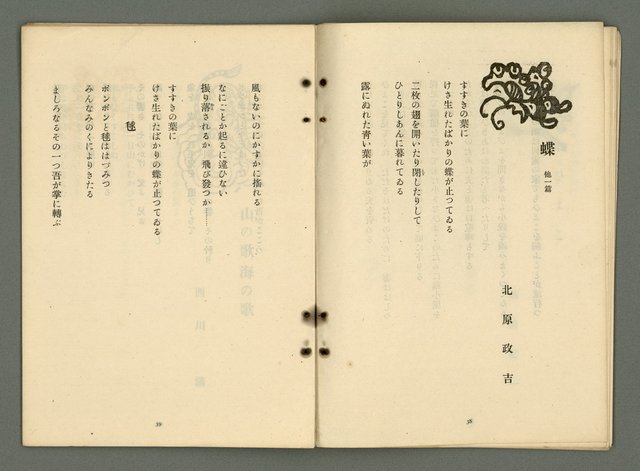 蝶
他一篇
北原政吉
すすきの葉に
けさ生れたばかりの蝶が止つてゐる
二枚の翅を開いたり閉したりして
ひとりしあんに暮れてゐる
露にぬれた靑い葉が
38
風もないのにかすかに搖れる
なにごとか起るに違ひない
振り落されるか 飛び發つか……
すすきの葉に
けさ生れたばかりの蝶が止つてゐる
毬
ポンポンと毬ははづみつ
みんなみのくによりきたる
ましろなるその一つ吾が掌に轉ぶ
39